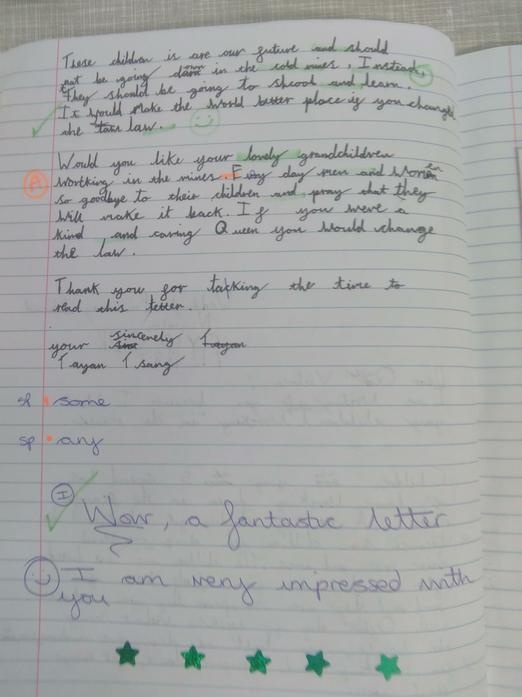 These children is are our future and should
not be going down in the cold mines. Instead,
They should be going to shcool and learn.
It would make the world better place if you change
the law.
Would you like your lovely grandchildren
A
Workking in the mines. Evry day men and Women
so goodbye to their children and pray that they
will make it back. If you were a
kind and caring Queen you would change
the law.
Thank you for takking the time to
read this letter.
your sincerely
Tayan Tsang
sp . some
sp . any
I
Wow, a fantastic letter
I am very impressed with
you